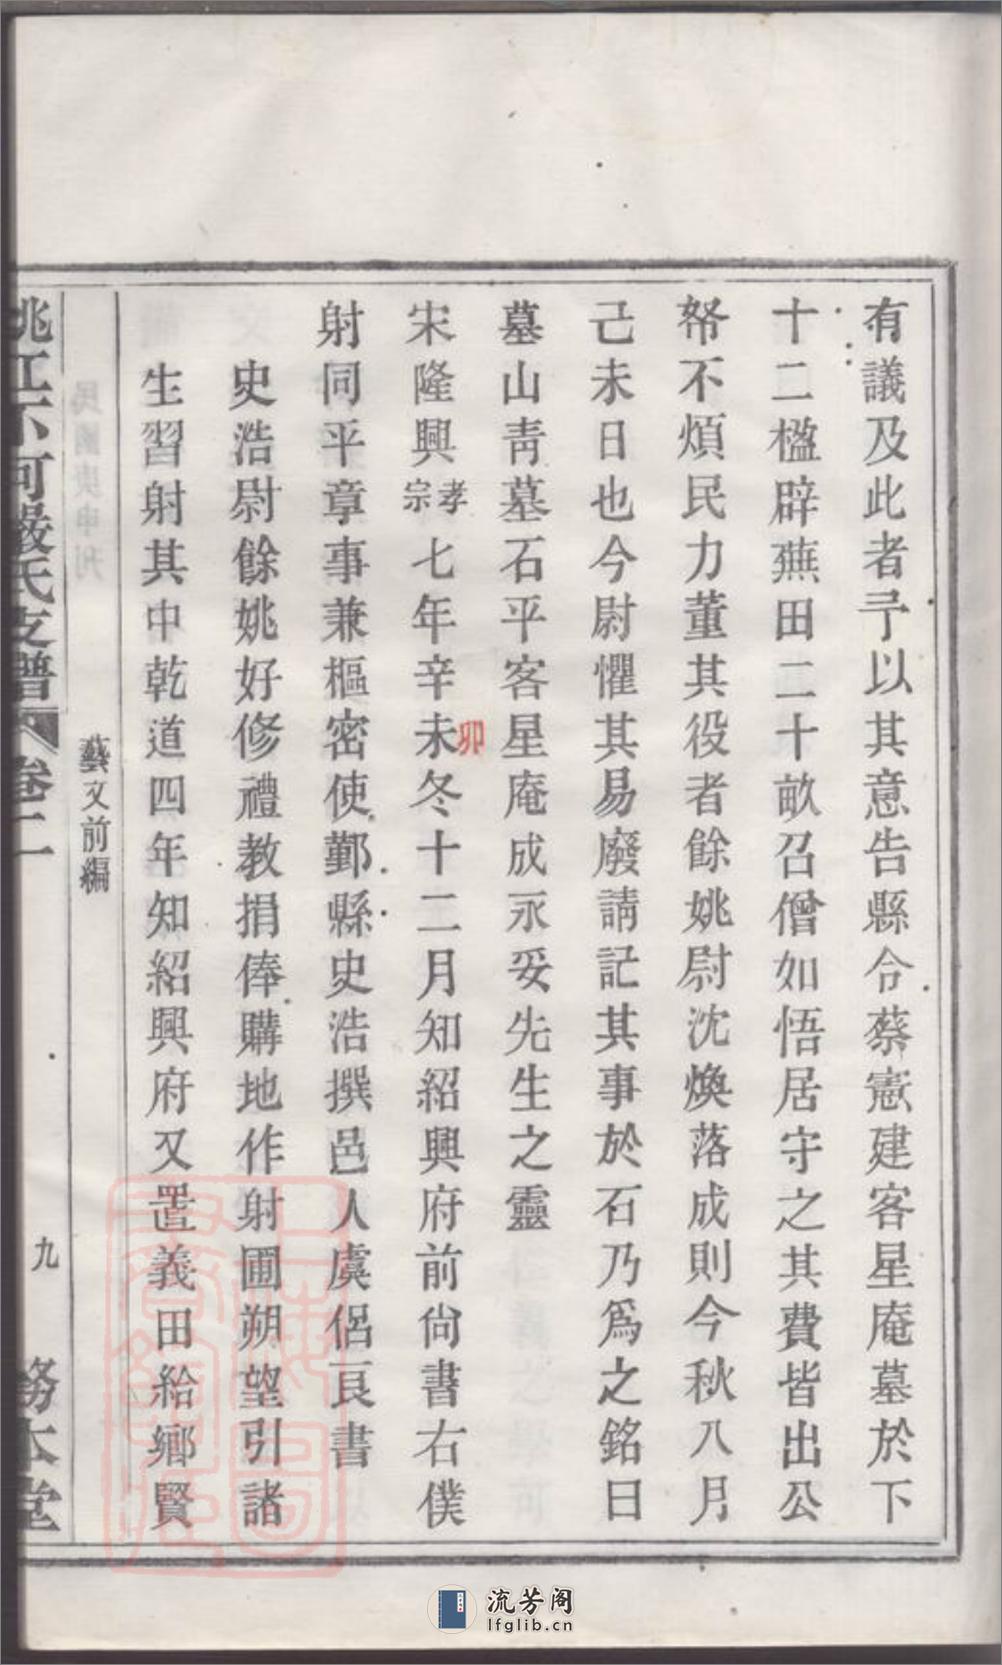 有議及此者予以其意告縣令蔡憲建客星庵墓於下
十二楹辟蕪田二十畝召僧如悟居守之其費皆出公
帑不煩民力董其役者餘姚尉沈煥落成則今秋八月
己未日也今尉懼其易廢請記其事於石乃爲之銘曰
墓山靑墓石平客星庵成永妥先生之靈
宋隆興孝宗七年辛未冬十二月知紹興府前尙書右僕
卯
射同平章事兼樞密使鄞縣史浩撰邑人虞侶良書
史浩尉餘姚好修禮教捐俸購地作射圃朔望引諸
生習射其中乾道四年知紹興府又置義田給鄉賢
藝文前編
姚江下河嚴氏支譜 卷二
九
務本堂
流芳阁
lfglib.cn